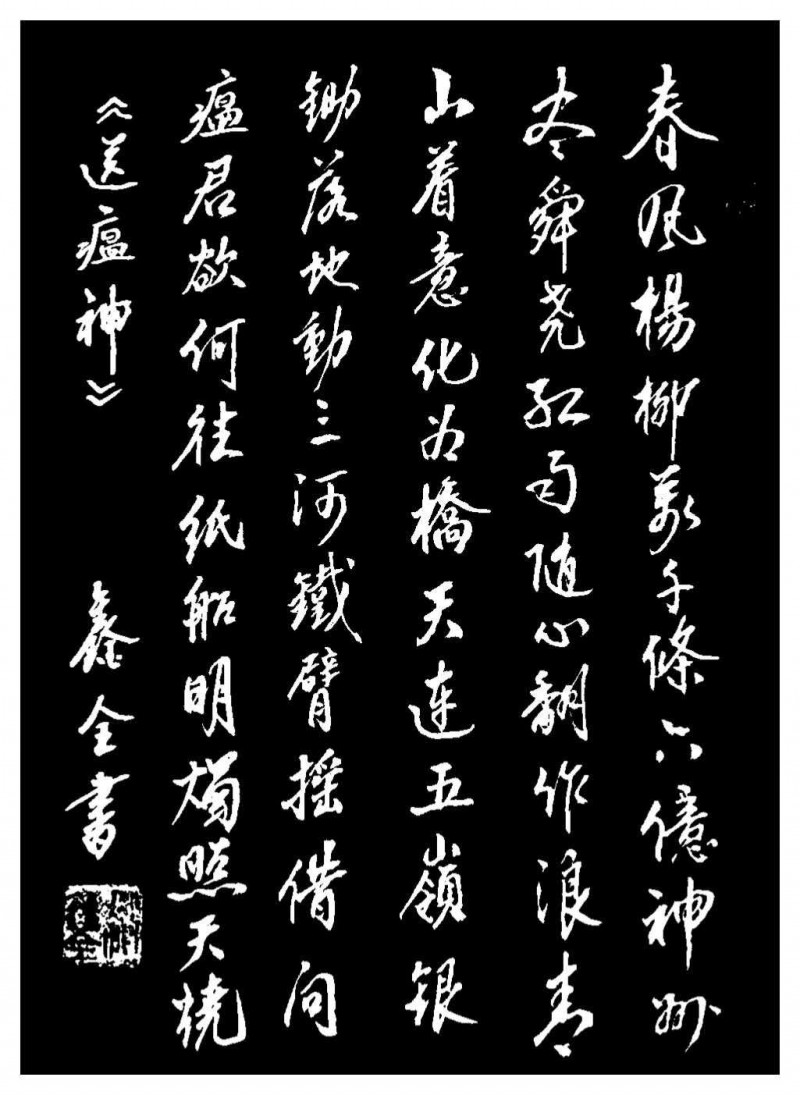 春风楊柳萬千條六億神州
尽舜尧红雨随心翻作浪青
山着意化为橋天连五嶺银
锄落地動三河鐵臂摇借问
瘟君欲何往纸船明燭照天燒
《送瘟神》 鑫全書